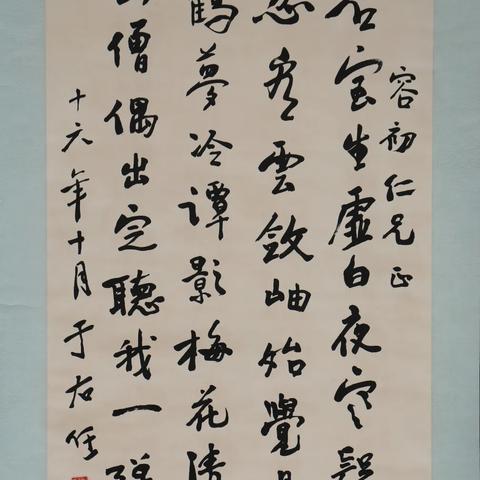 容初仁兄正
石室生虛白夜寒
忽看雲斂岫始覺
鶴夢冷譚影梅花清
僧偶出定聽我一彈
十六年十月于右任